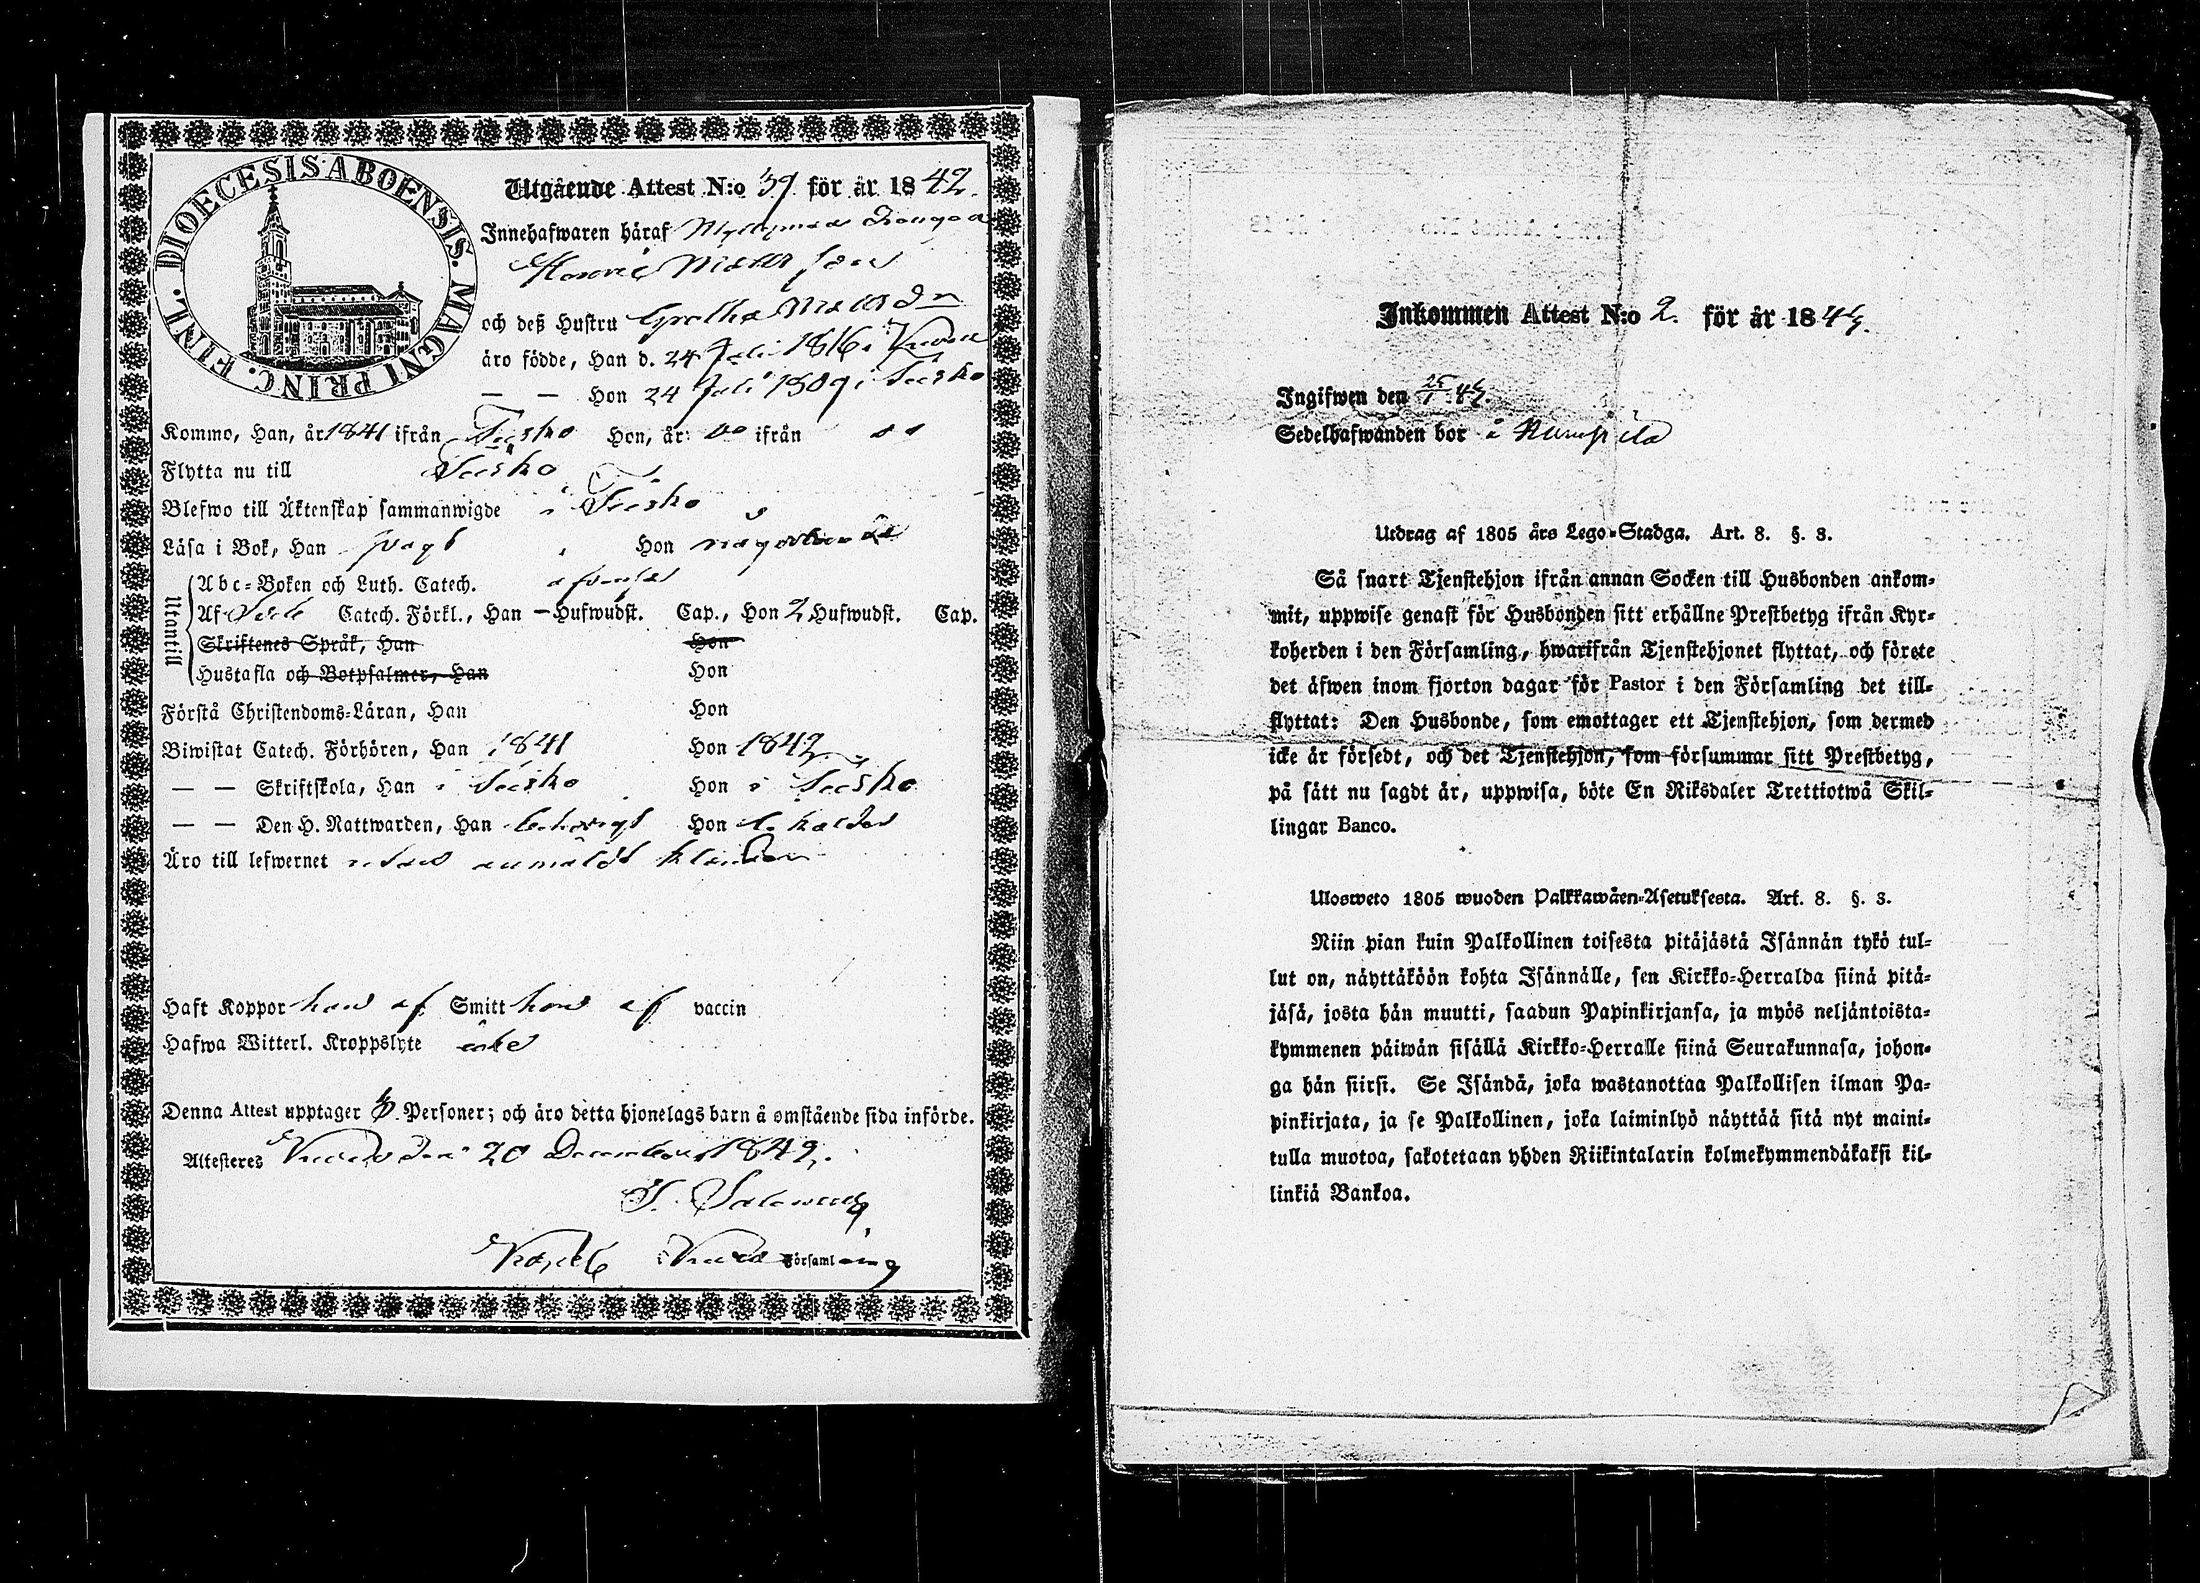 DIOECESIS ABOENSIS. MAGNI PRINC. FINL.
Utgående Attest N:o 39 för år 1842.
Innehafwaren häraf
Matts son
och deß Hustru Gretha Matts dr
äro födde, Han d. 24 Juli 1816 i
— — Hon 24 Juli 1809 i Teisko
Kommo, Han, år 1841 ifrån Teisko Hon, år: ifrån
Flytta nu till Teisko
Blefwo till Äktenskap sammanwigde i Teisko
Läsa i Bok, Han swagt Hon någorlunda
Utantill
Abc-Boken och Luth. Catech.
Af Catech. Förkl., Han — Hufwudst. Cap., Hon 2 Hufwudst. Cap.
Skriftenes Språk, Han Hon
Hustafla och Botpsalmer, Han Hon
Förstå Christendoms-Läran, Han Hon
Biwistat Catech. Förhören, Han 1841 Hon 1842
— — Skriftskola, Han i Teisko Hon i Teisko
— — Den H. Nattwarden, Han behörigt Hon
Äro till lefwernet utan anmäldt klander
Haft Koppor han af Smitt hon af vaccin
Hafwa Witterl. Kroppslyte icke
Denna Attest upptager Personer; och äro detta hjonelags barn å omstående sida införde.
Attesteres den 20 December 1842.
i Församling
Inkommen Attest N:o 2. för år 1843.
Ingifwen den 25/1 43.
Sedelhafwanden bor i
Utdrag af 1805 års Lego-Stadga. Art. 8. §. 3.
Så snart Tjenstehjon ifrån annan Socken till Husbonden ankom-
mit, uppwise genast för Husbonden sitt erhållne Prestbetyg ifrån Kyr-
koherden i den Församling, hwarifrån Tjenstehjonet flyttat, och förete
det äfwen inom fjorton dagar för Pastor i den Församling det till-
flyttat: Den Husbonde, som emottager ett Tjenstehjon, som dermed
icke är försedt, och det Tjenstehjon, som försummar sitt Prestbetyg,
på sätt nu sagdt är, uppwisa, böte En Riksdaler Trettiotwå Skil-
lingar Banco.
Ulosweto 1805 wuoden Palkkawäen-Asetuksesta. Art. 8. §. 3.
Niin pian kuin Palkollinen toisesta pitäjästä Isännän tykö tul-
lut on, näyttäköön kohta Isännälle, sen Kirkko-Herralda siinä pitä-
jäsä, josta hän muutti, saadun Papinkirjansa, ja myös neljäntoista-
kymmenen päiwän sisällä Kirkko-Herralle siinä Seurakunnasa, johon-
ga hän siirsi. Se Isändä, joka wastanottaa Palkollisen ilman Pa-
pinkirjata, ja se Palkollinen, joka laiminlyö näyttää sitä nyt maini-
tulla muotoa, sakotetaan yhden Riikintalarin kolmekymmendäkaksi kil-
linkiä Bankoa.